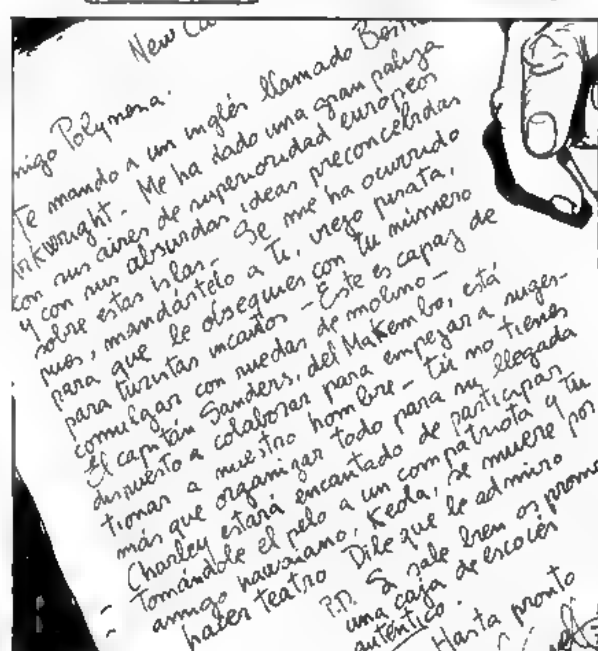 New Ca
migo Polymena:
Te mando a un inglés llamado
Arkwright. Me ha dado una gran paliza
con sus aires de superioridad europeos
y con sus absurdas ideas preconcebidas
sobre estas Islas. Se me ha ocurrido
pues, mandártelo a Ti, viejo pirata,
para que le obsequies con tu número
para turistas incautos - Este es capaz de
comulgar con ruedas de molino -
El capitán Sanders, del Makembo, está
dispuesto a colaborar para empezar a suges-
tionar a nuestro hombre - Tú no tienes
más que organizar todo para su llegada
Charley estará encantado de participar
Tomándole el pelo a un compatriota y tu
amigo hawaiano, Keola, se muere por
hacer teatro Dile que le admiro
P.D. Si sale bien os prome
una caja de escocés
auténtico.
Hasta pronto